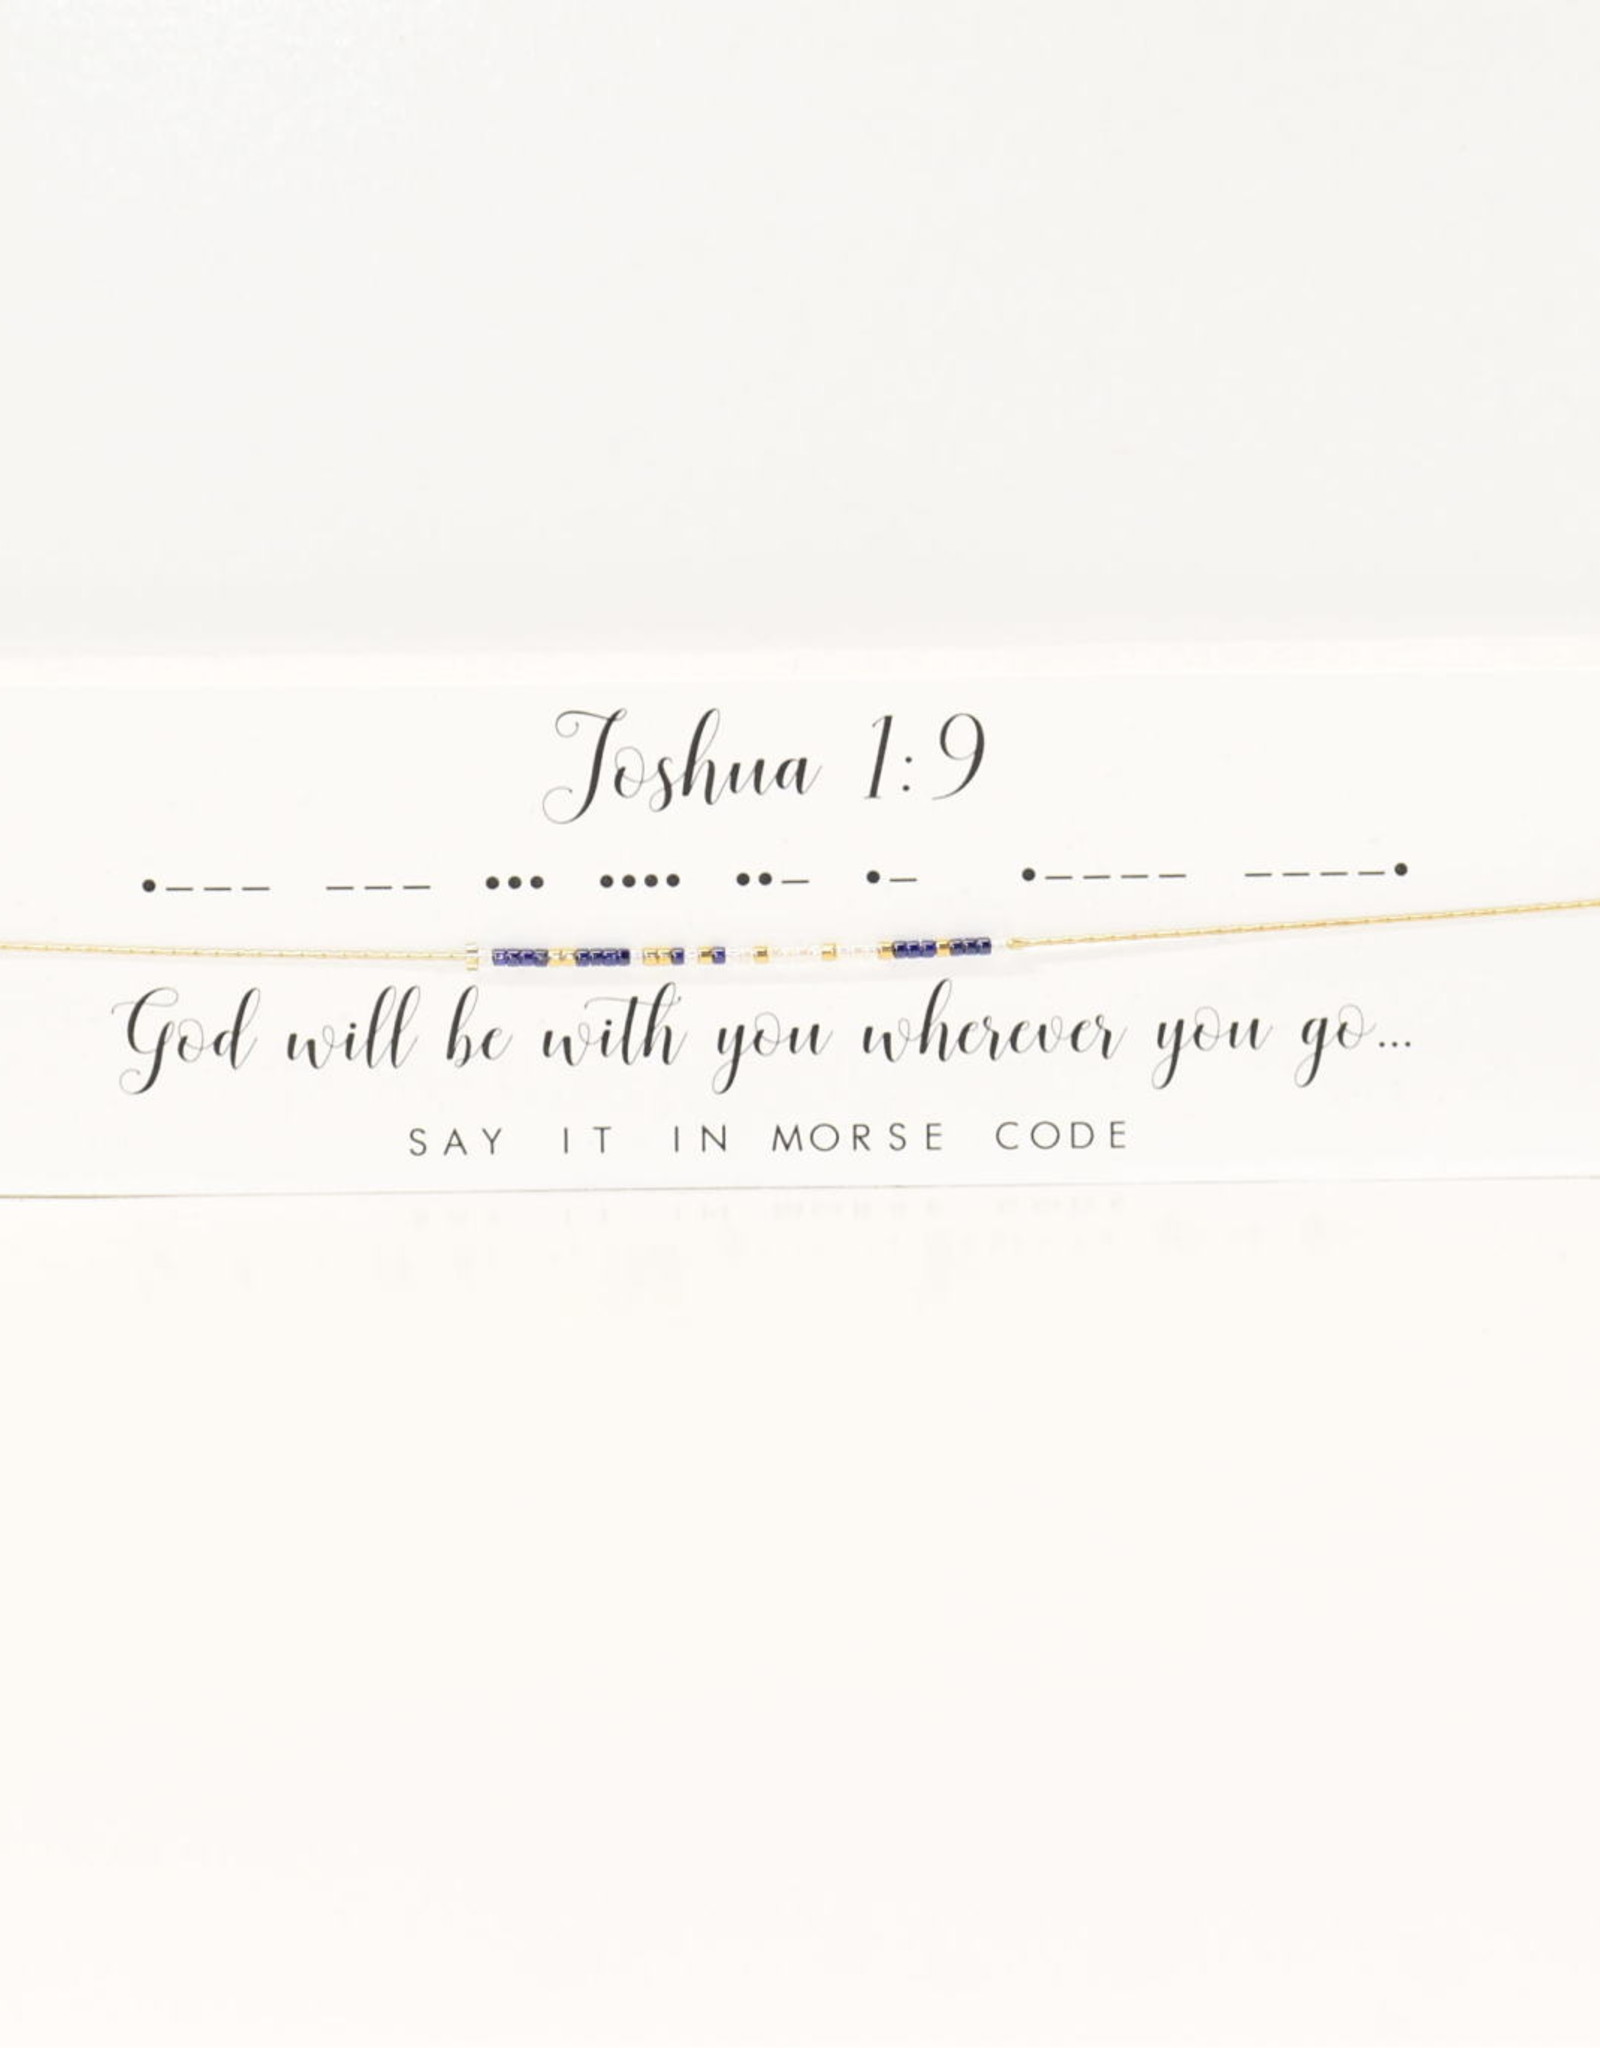 Joshua 1:9
•––– ––– ••• •••• ••– •– •–––– ––––•
God will be with you wherever you go...
SAY IT IN MORSE CODE